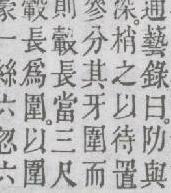 通藝錄曰。防與
深。梢之以待置
參分其牙圍而
則轂長當三尺
轂長爲圍。以圍
豪一絲六忽六